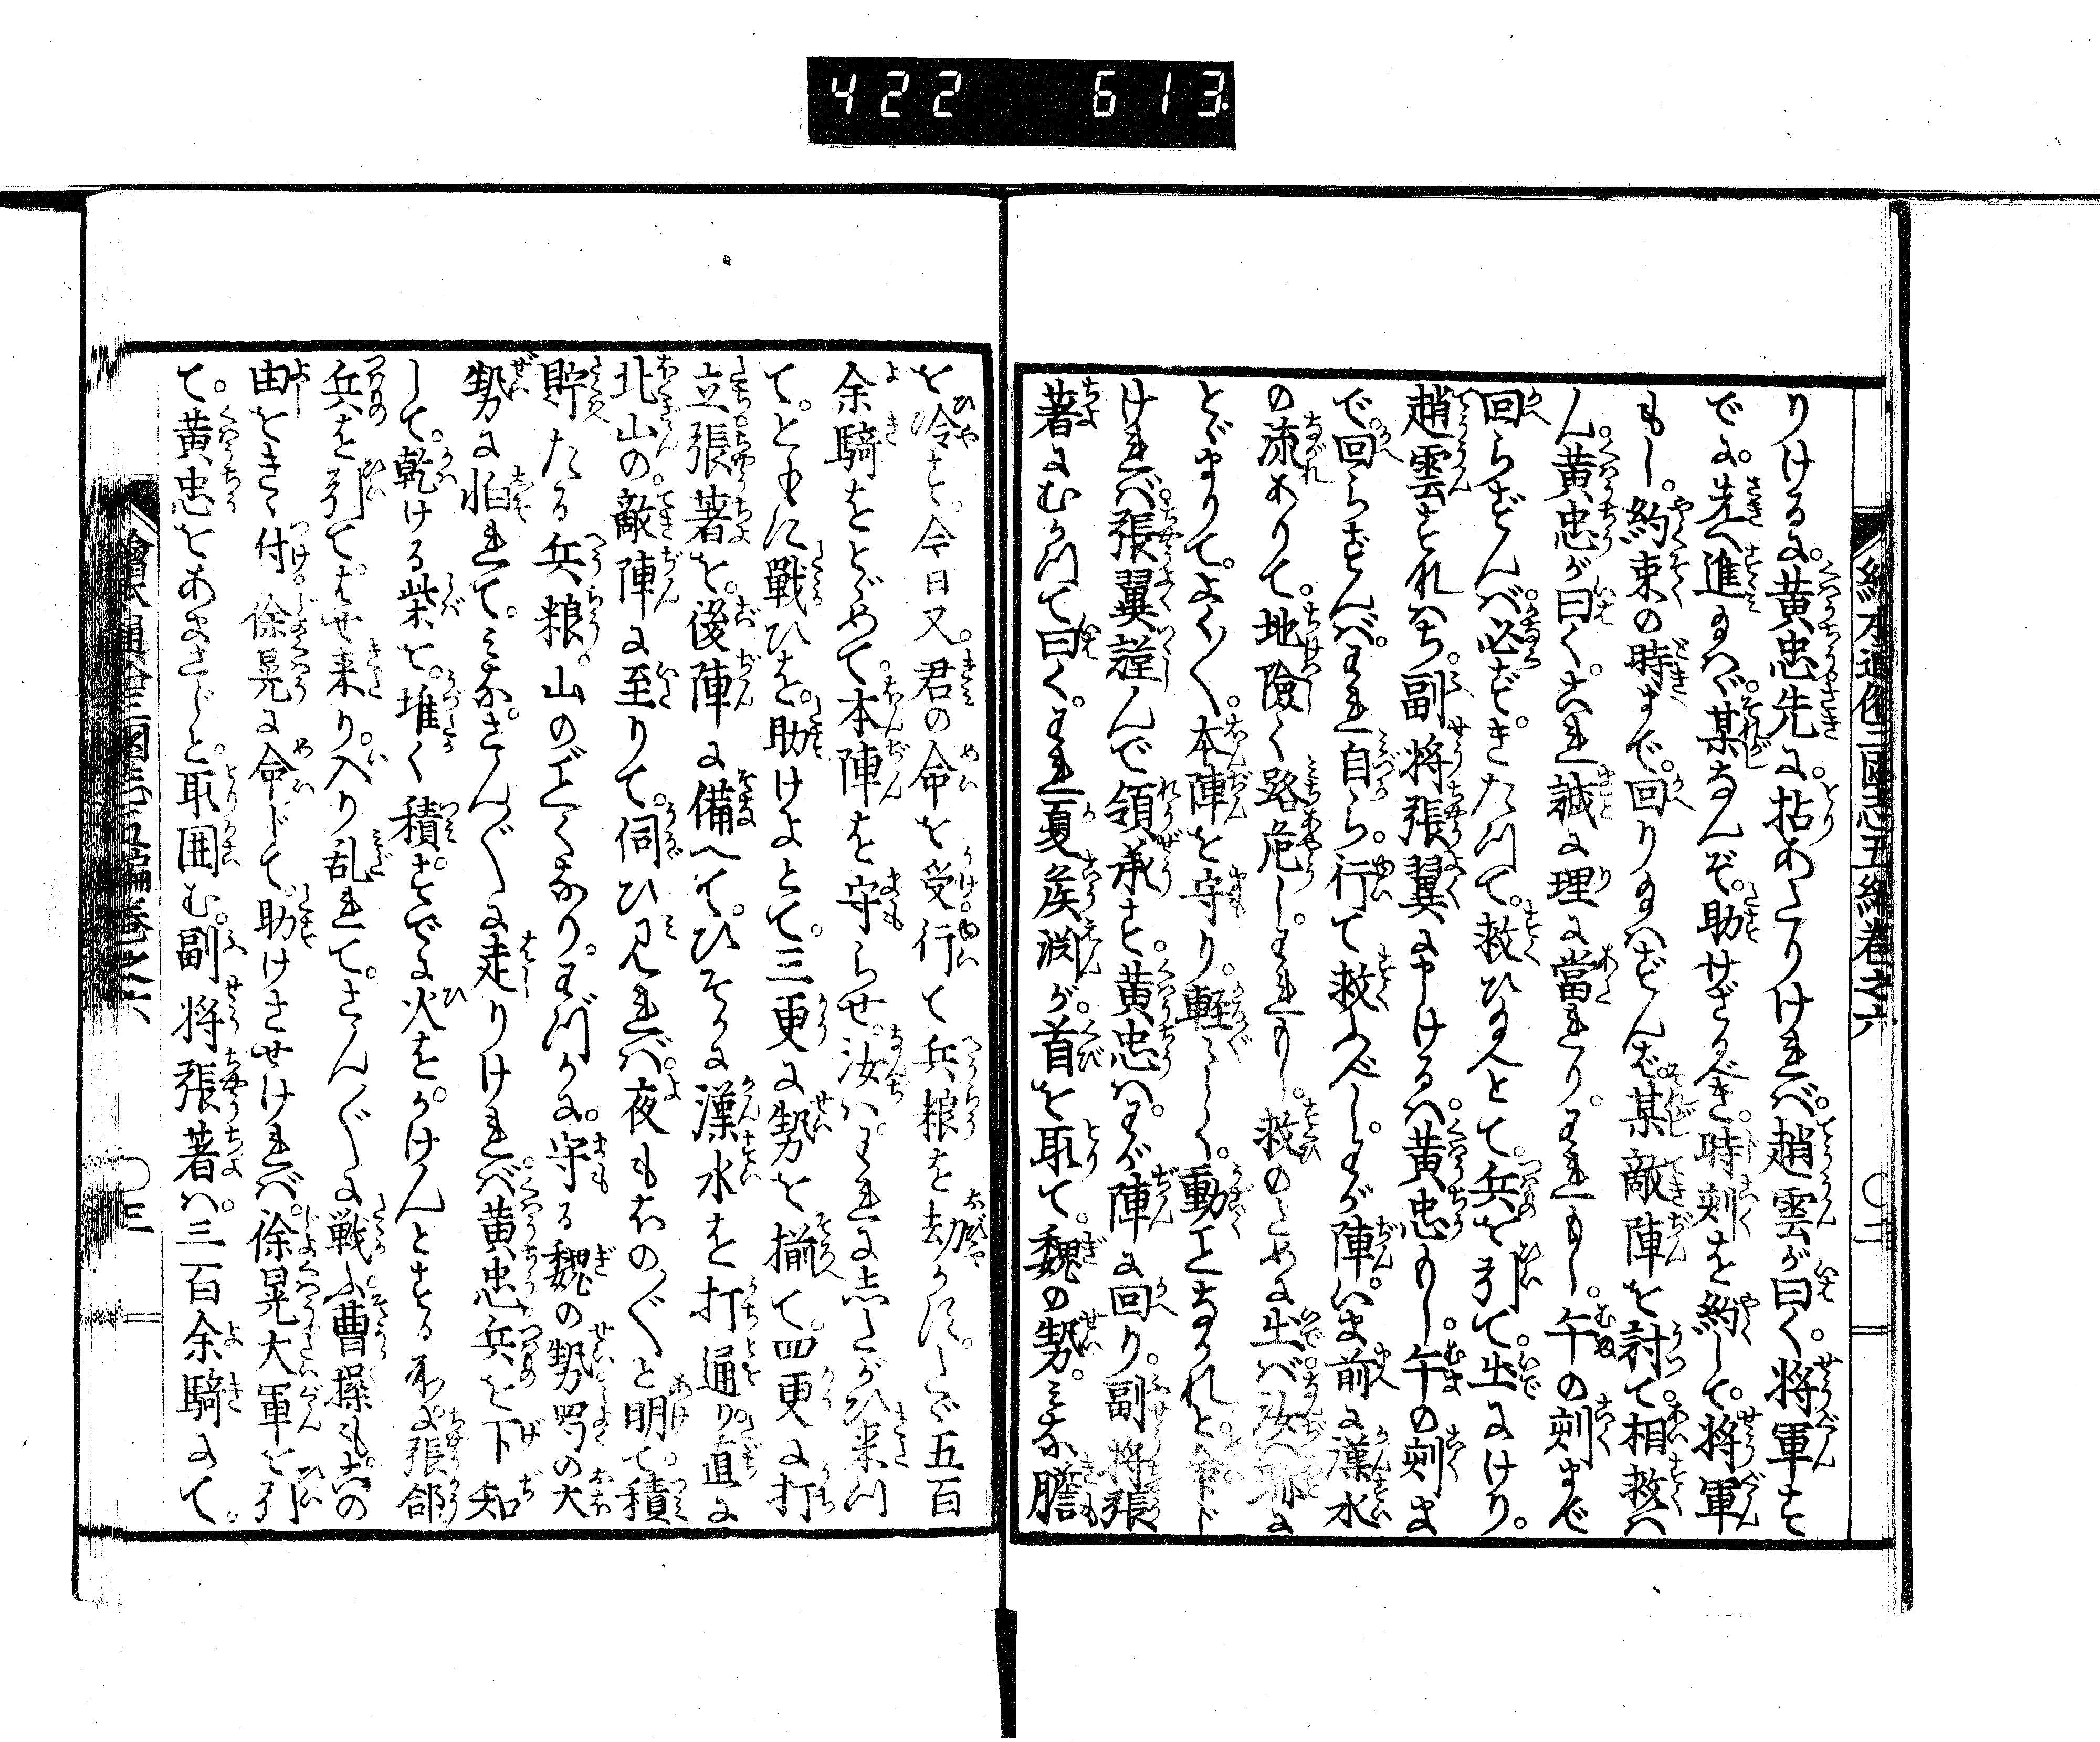 422 613
繪本通俗三國志五編卷之六 〇二
りけるに。黄忠先に拈あたりければ。趙雲が曰く。将軍す
でに。先へ進み玉へば。某なんぞ。助けざるべき。時刻を約して。将軍
もし。約束の時まで。回り玉はずんば。某敵陣を討て。相救は
ん。黄忠が曰く。これ誠に理に當れり。われもし。午の刻まで
回らずんば。必ずきたつて。救ひ玉へとて。兵を引て。出にけり。
趙雲すなはち。副将張翼に申けるは。黄忠もし。午の刻ま
で。回らずんば。われ自ら。行て救ふべし。わが陣。いま前に漢水
の流ありて。地險く路危し。われもし。救のために出ば。汝へ跡に
とゞまりて。よく〱。本陣を守り。軽々しく。動ことなかれと。命ド
ければ。張翼謹んで領承す。黄忠は。わが陣に回り。副将張
著にむかつて曰く。われ夏侯淵が。首を取て。魏の勢。みな膽
を冷す。今日又。君の命を受。行て兵粮を劫かす。たゞ五百
余騎をとゞめて。本陣を守らせ。汝は。われにしたがひ来つ
て。ともに戰ひを。助けよとて。三更に勢を揃て。四更に打
立。張著を。後陣に備へて。ひそかに漢水を打通り。直に
北山の。敵陣に至りて。伺ひ見れば。夜もほの〲と明て。積
貯たる兵粮。山のごとくなり。わづかに。守る魏の勢。蜀の大
勢に怕れて。みな。さん〲に走りければ。黄忠兵を下知
して。乾ける柴を。堆く積。すでに火を。かけんとする所に。張郃
兵を引て。はせ来り。入り乱れて。さん〲に戦ふ。曹操も。この
由をきゝ付。徐晃に命ドて。助けさせければ。徐晃大軍を引
て。黄忠をあまさじと。取囲む。副将張著は。三百余騎にて。
繪本通俗三國志五編卷之六 〇三